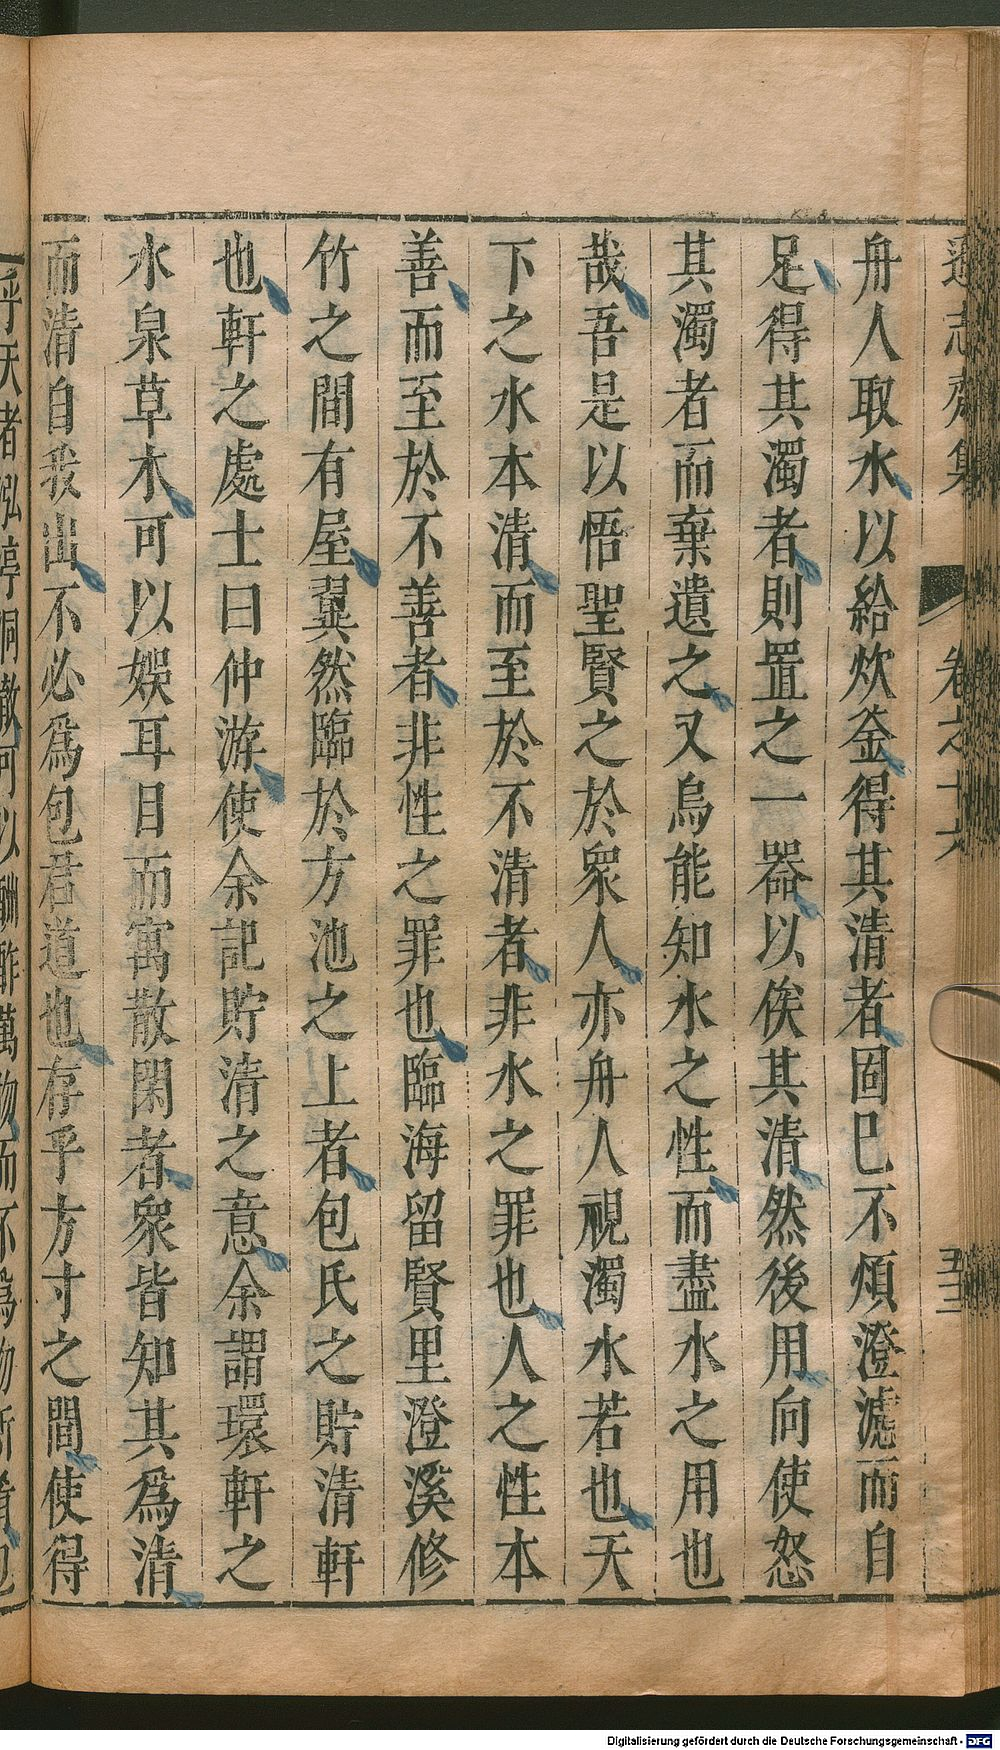 遜志齋集 卷之十六 五十三
舟人取水以給炊釜得其清者固已不煩澄濾而自
足得其濁者則置之一器以俟其清然後用向使怒
其濁者而棄遺之又烏能知水之性而盡水之用也
哉吾是以悟聖賢之於衆人亦舟人視濁水若也天
下之水本清而至於不清者非水之罪也人之性本
善而至於不善者非性之罪也臨海留賢里澄溪修
竹之間有屋翼然臨於方池之上者包氏之貯清軒
也軒之處士曰仲游使余記貯清之意余謂環軒之
水泉草木可以娛耳目而寓散閑者衆皆知其爲清
而清自我出不必爲包君道也存乎方寸之間使得
乎天者泓渟洞澈可以酬酢萬物而不爲物所淆包
Digitalisierung gefördert durch die Deutsche Forschungsgemeinschaft - DFG